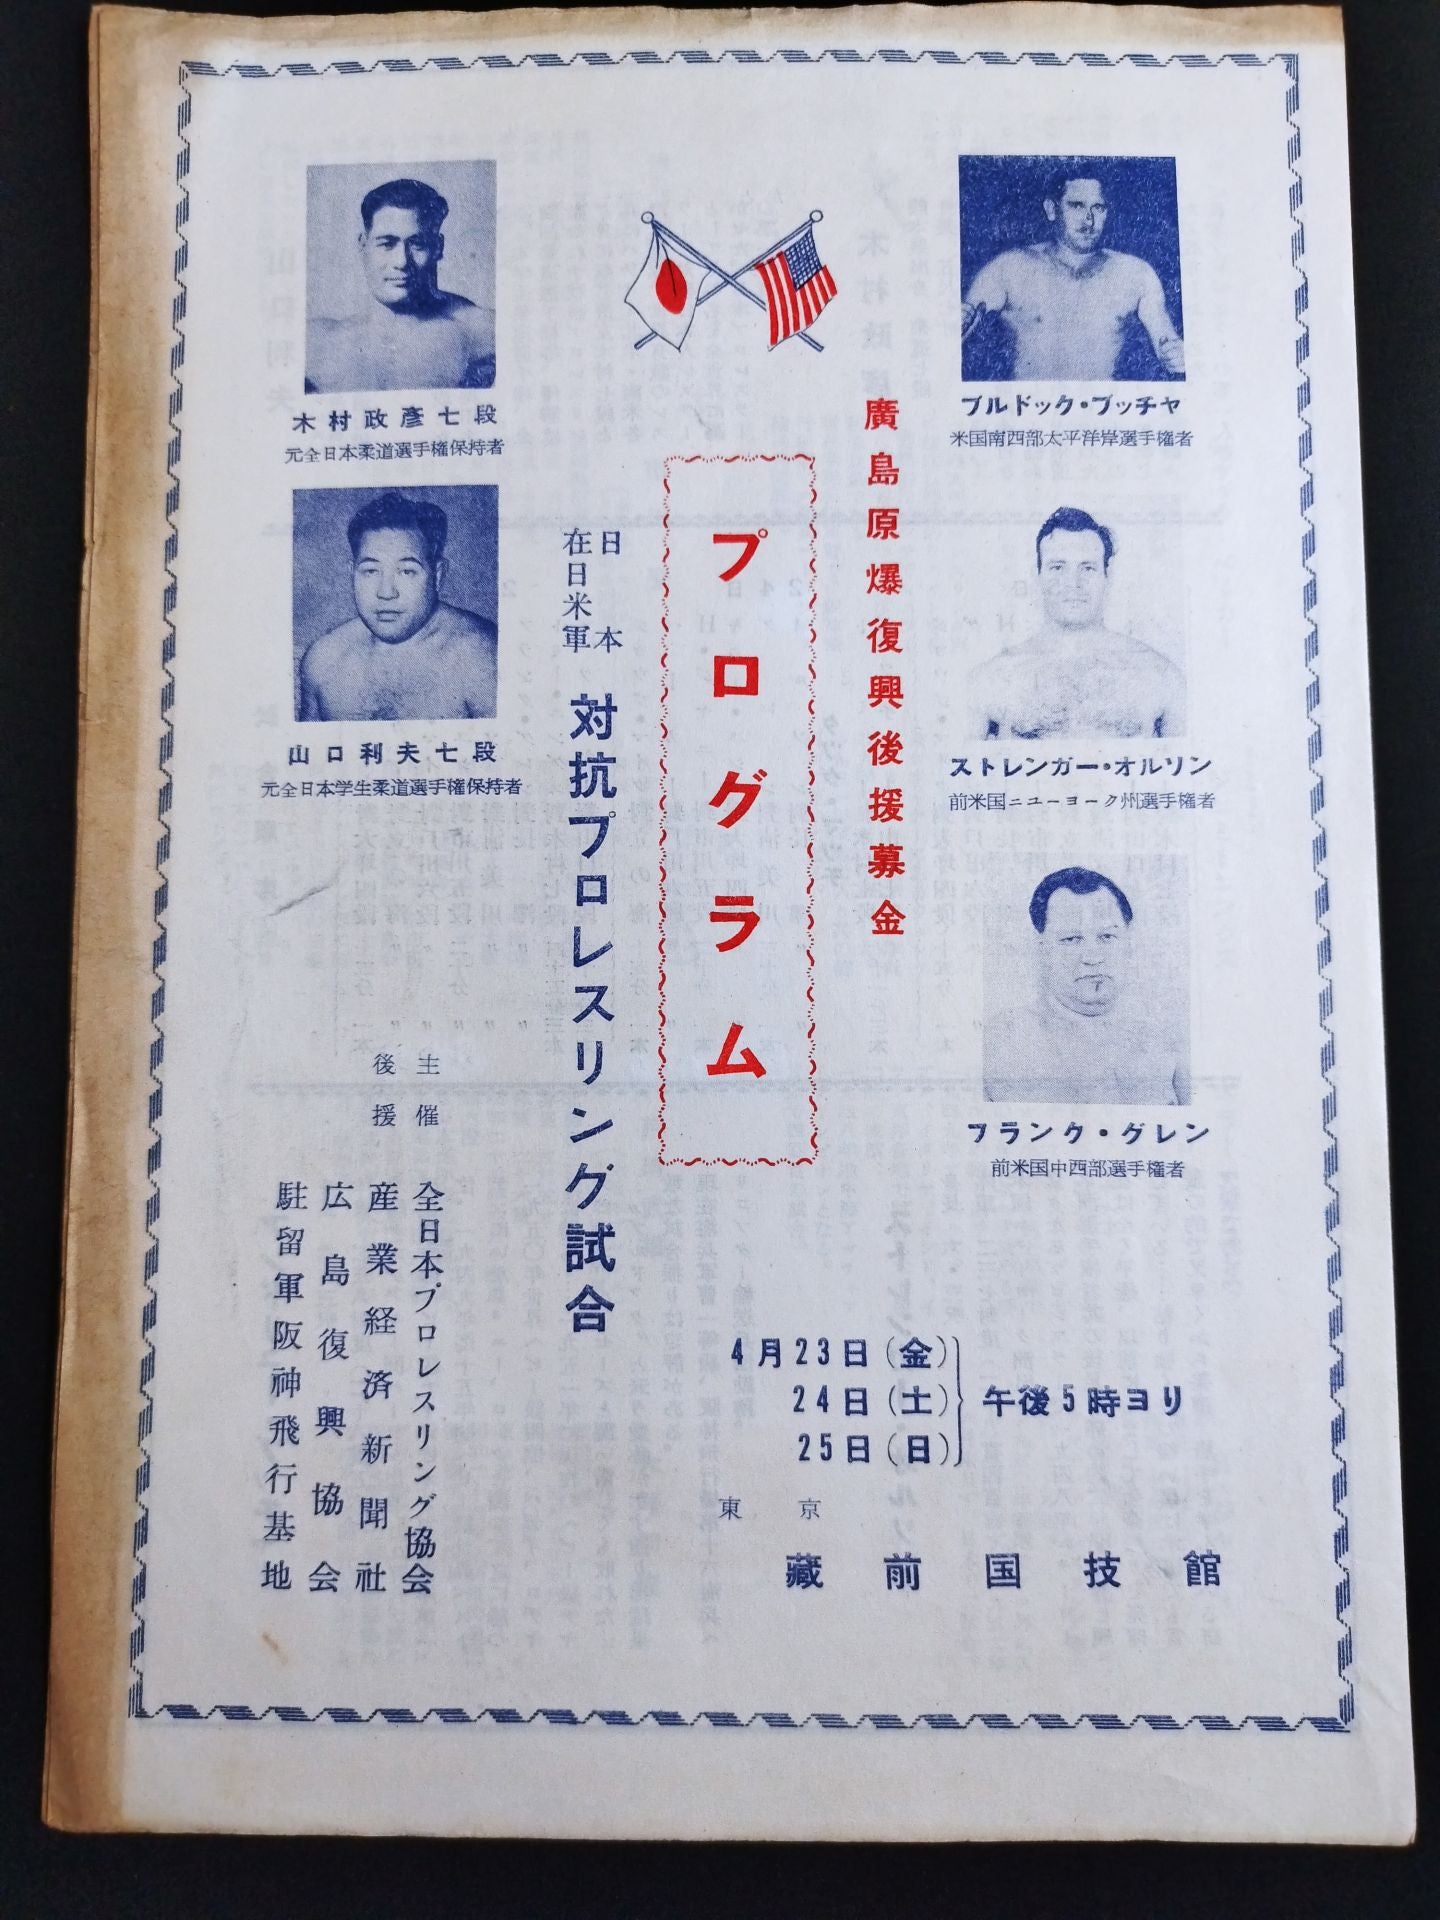 廣島原爆復興後援募金
プログラム
日本
在日米軍
対抗プロレスリング試合
木村政彦七段
元全日本柔道選手権保持者
山口利夫七段
元全日本学生柔道選手権保持者
ブルドック・ブッチャ
米国南西部太平洋岸選手権者
ストレンガー・オルソン
前米国ニユーヨーク州選手権者
フランク・グレン
前米国中西部選手権者
主催 全日本プロレスリング協会
後援 産業経済新聞社
広島復興協会
駐留軍阪神飛行基地
4月23日(金)
24日(土)
25日(日)
午後5時ヨリ
東京
藏前国技館